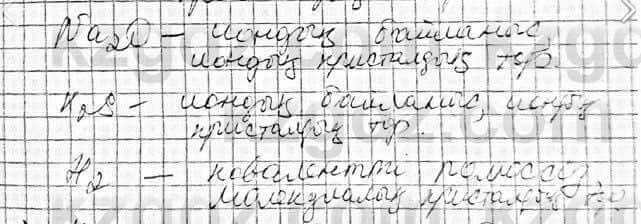 Na₂O – иондық байланыс,
иондық кристалдық тор.
K₂S – иондық байланыс, иондық
кристалдық тор.
H₂ – ковалентті полюссіз,
молекулалық кристалдық тор